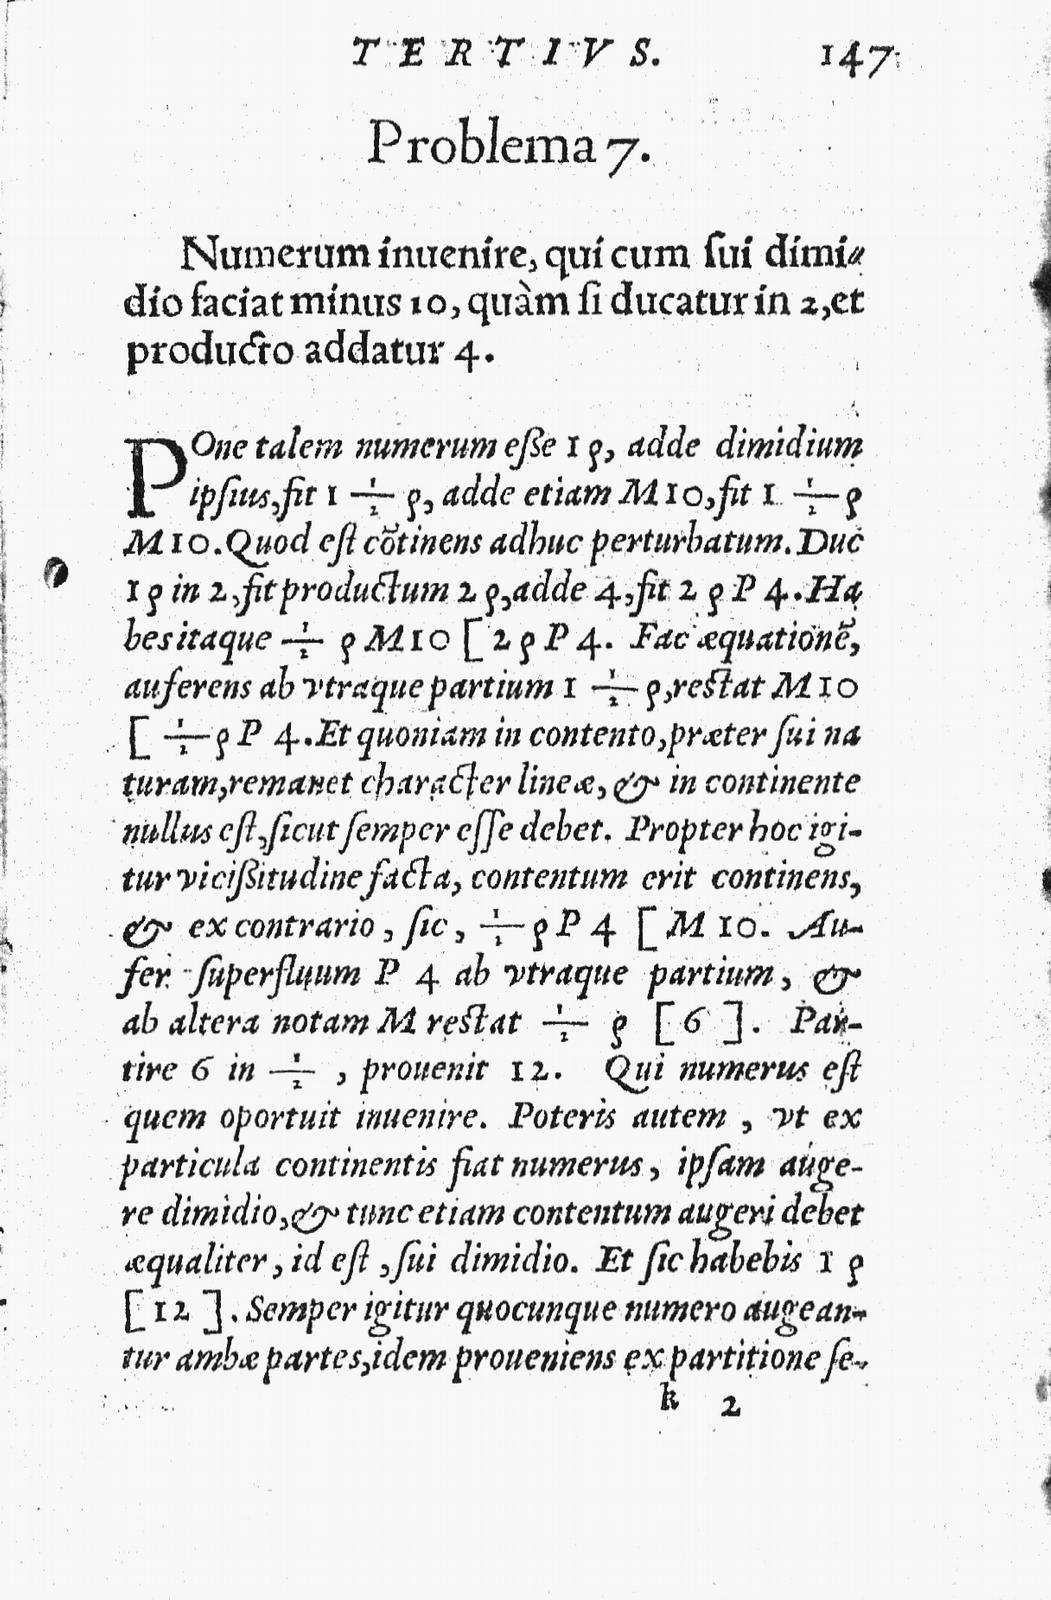 TERTIVS. 147
Problema 7.
Numerum inuenire, qui cum ſui dimi-
dio faciat minus 10, quàm ſi ducatur in 2, et
producto addatur 4.
POne talem numerum eſſe 1 ρ, adde dimidium
ipſius, fit 1 1/2 ρ, adde etiam M 10, fit 1 1/2 ρ
M 10. Quod eſt cõtinens adhuc perturbatum. Duc
1 ρ in 2, fit productum 2 ρ, adde 4, fit 2 ρ P 4. Ha
bes itaque 1/2 ρ M 10 [ 2 ρ P 4. Fac æquationẽ,
auferens ab vtraque partium 1 1/2 ρ, restat M 10
[ 1/2 ρ P 4. Et quoniam in contento, præter ſui na
turam, remanet character lineæ, & in continente
nullus eſt, ſicut ſemper eſſe debet. Propter hoc igi-
tur viciſſitudine facta, contentum erit continens,
& ex contrario, ſic, 1/2 ρ P 4 [ M 10. Au-
fer ſuperfluum P 4 ab vtraque partium, &
ab altera notam M restat 1/2 ρ [ 6 ]. Par-
tire 6 in 1/2, prouenit 12. Qui numerus eſt
quem oportuit inuenire. Poteris autem, vt ex
particula continentis fiat numerus, ipſam auge-
re dimidio, & tunc etiam contentum augeri debet
æqualiter, id eſt, ſui dimidio. Et ſic habebis 1 ρ
[ 12 ]. Semper igitur quocunque numero augean-
tur ambæ partes, idem proueniens ex partitione ſe-
k 2